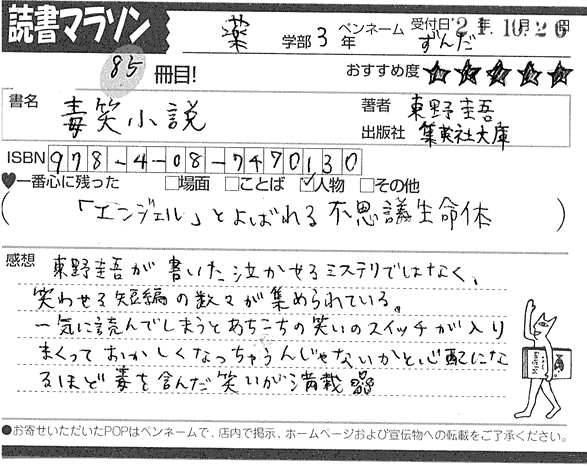 読書マラソン 薬学部3年 ペンネーム ずんだ 受付日 '21年10月26日
85冊目! おすすめ度 ★★★★★
書名 毒笑小説 著者 東野圭吾
出版社 集英社文庫
ISBN 978-4-08-7470130
♥一番心に残った □場面 □ことば ☑人物 □その他
(「エンジェル」とよばれる不思議生命体)
感想 東野圭吾が書いた泣かせるミステリではなく、
笑わせる短編の数々が集められている。
一気に読んでしまうとあちこちの笑いのスイッチが入り
まくっておかしくなっちゃうんじゃないかと心配にな
るほど毒を含んだ笑いが満載
●お寄せいただいたPOPはペンネームで、店内で掲示、ホームページおよび宣伝物への転載をご了承ください。